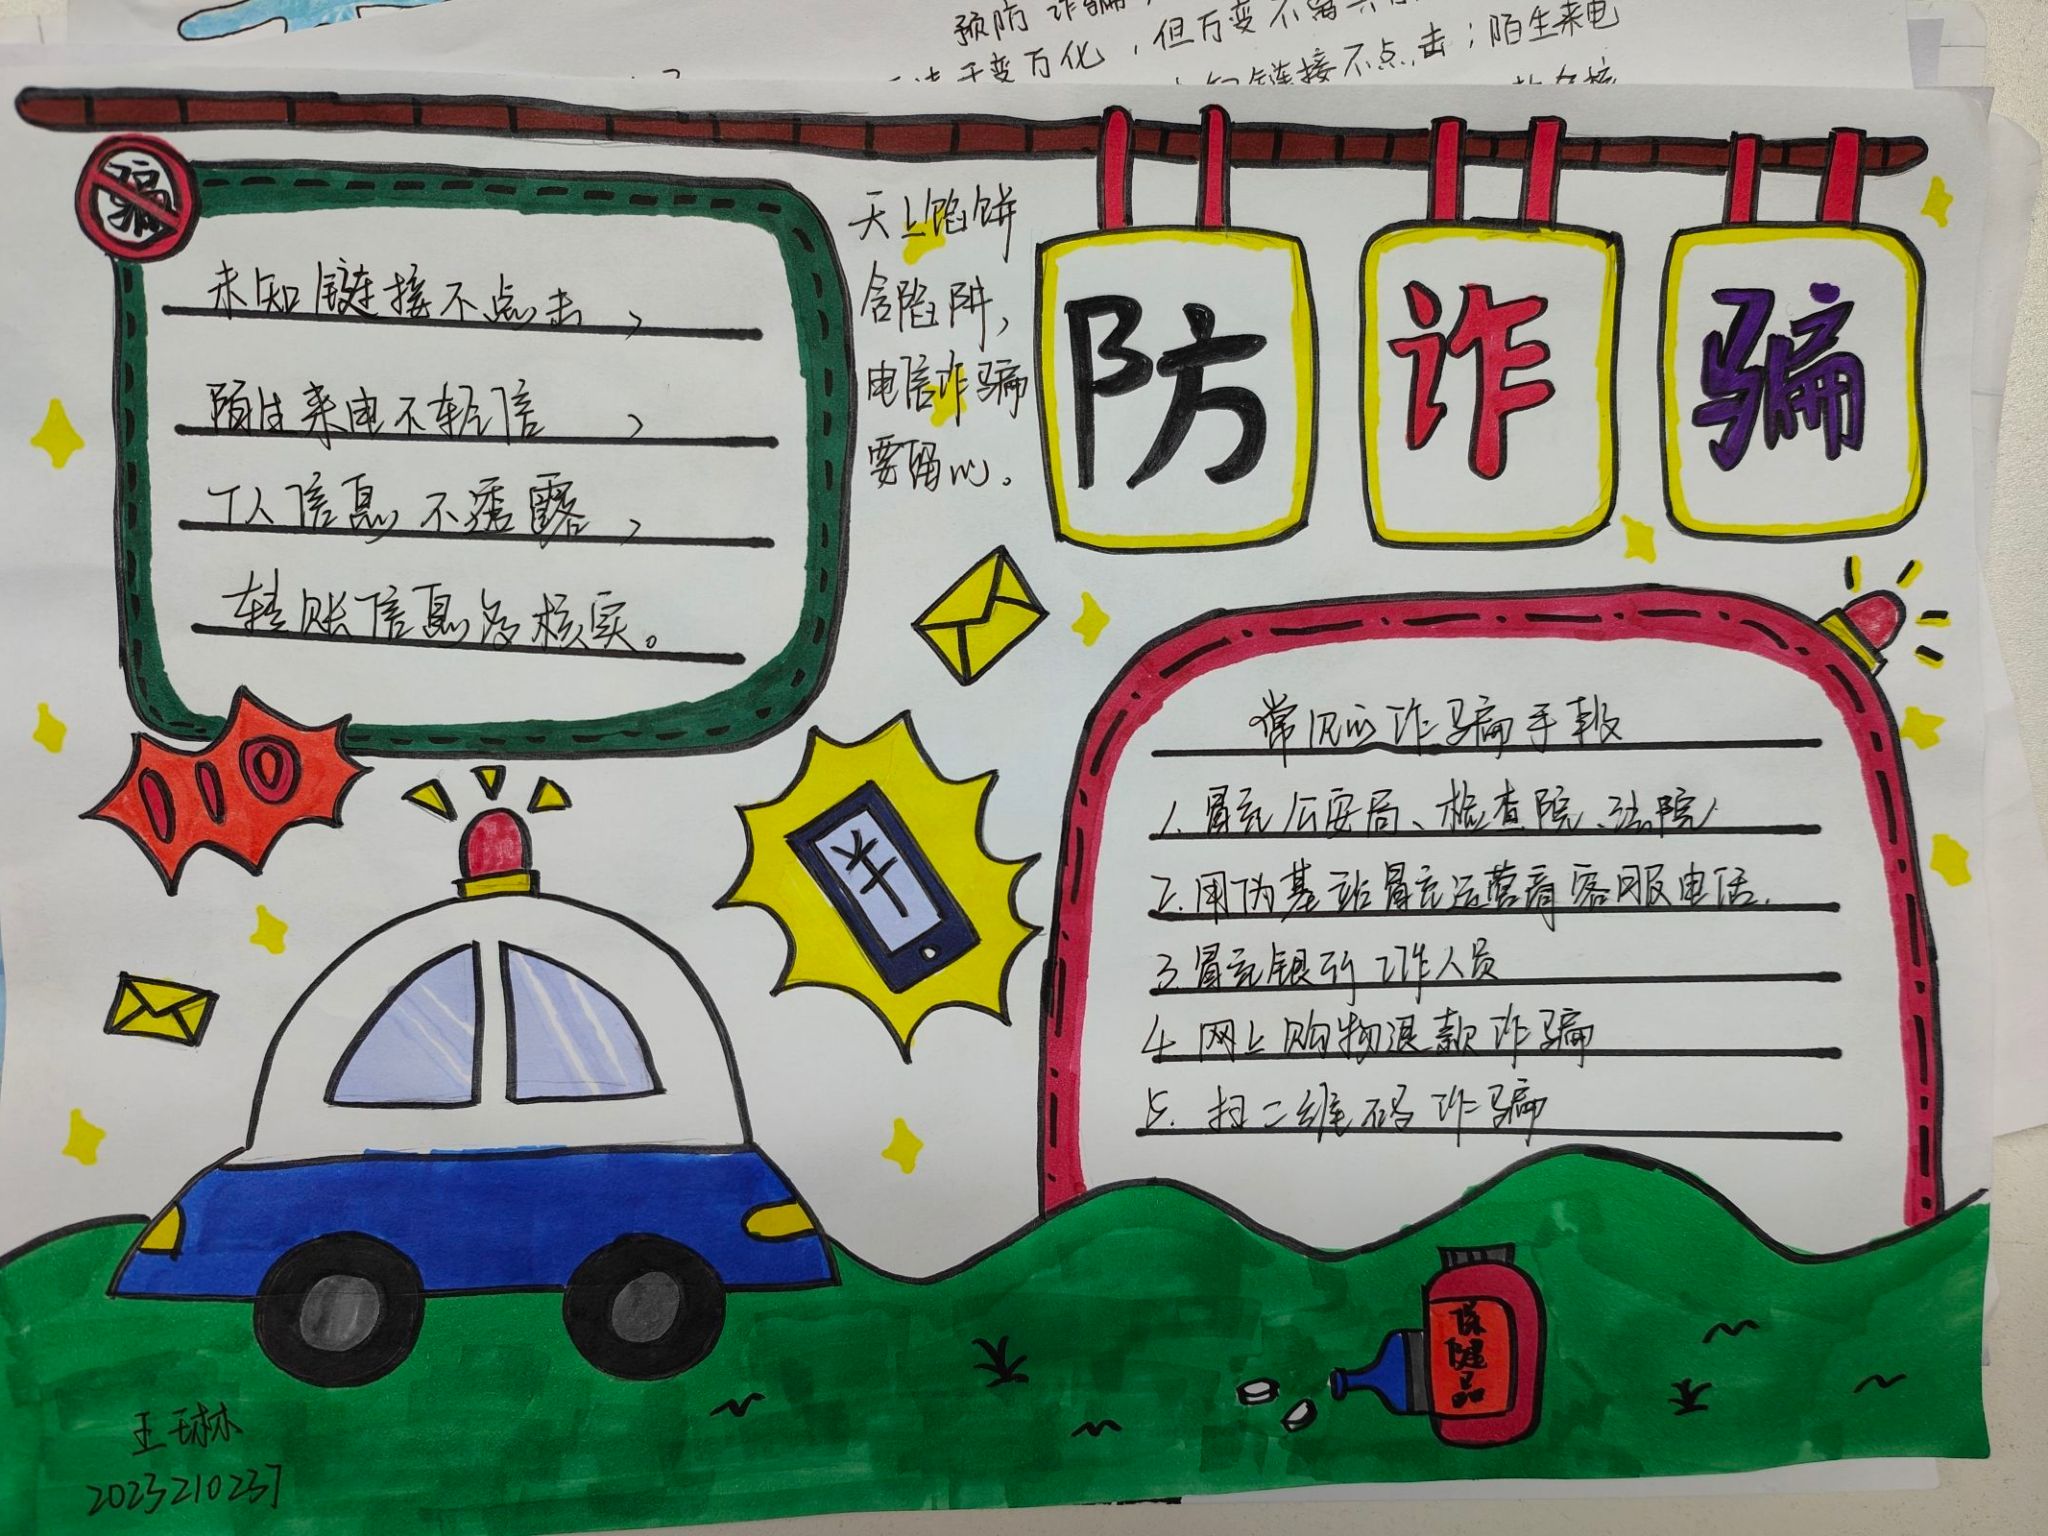 预防诈骗
千变万化，但万变不离
链接不点击；陌生来电
防诈骗
骗
未知链接不点击，
陌生来电不轻信，
个人信息不透露，
转账信息多核实。
天上馅饼
含陷阱，
电信诈骗
要留心。
110
常见的诈骗手段
1.冒充公安局、检查院、法院
2.用伪基站冒充运营商客服电话.
3.冒充银行工作人员
4.网上购物退款诈骗
5.扫二维码诈骗
保健品
王琳
2023210237